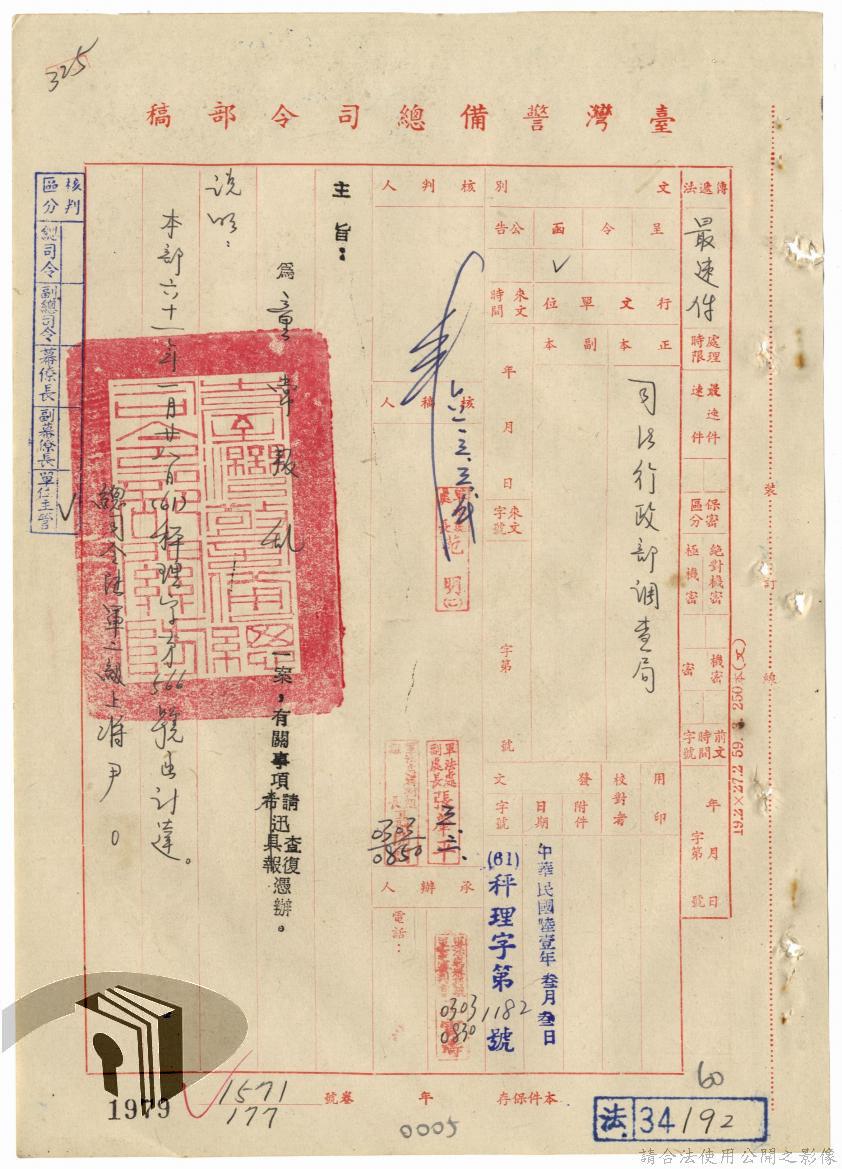 325
臺灣警備總司令部稿
傳遞法
最速件
處理時限
最速件
速件
保密區分
絕對機密
極機密
機密
密
前文時間字號
年月日
字第號
文別
呈
令
函
公告
✓
行文單位
正本
副本
司法行政部調查局
來文時間
年月日
來文字號
字第
號
用印
校對者
發文
附件
日期
字號
中華民國陸壹年叁月叁日
(61)秤理字第1182號
核判人
核稿人
軍法處副處長張
0303
0850
承辦人
電話：
0303
0830
主旨：
為童常叛亂一案，有關事項請查復憑辦。
希迅具報
說明：
本部六十一年一月廿八日(61)秤理字第566號函計達。
總司令陸軍二級上將尹○
核判區分
總司令
副總司令
幕僚長
副幕僚長
單位主管
✓
裝訂線
19.2×27.2 59.
本件保存
年
卷號
1571
177
1979
0005
60
法.34192
請合法使用公開之影像